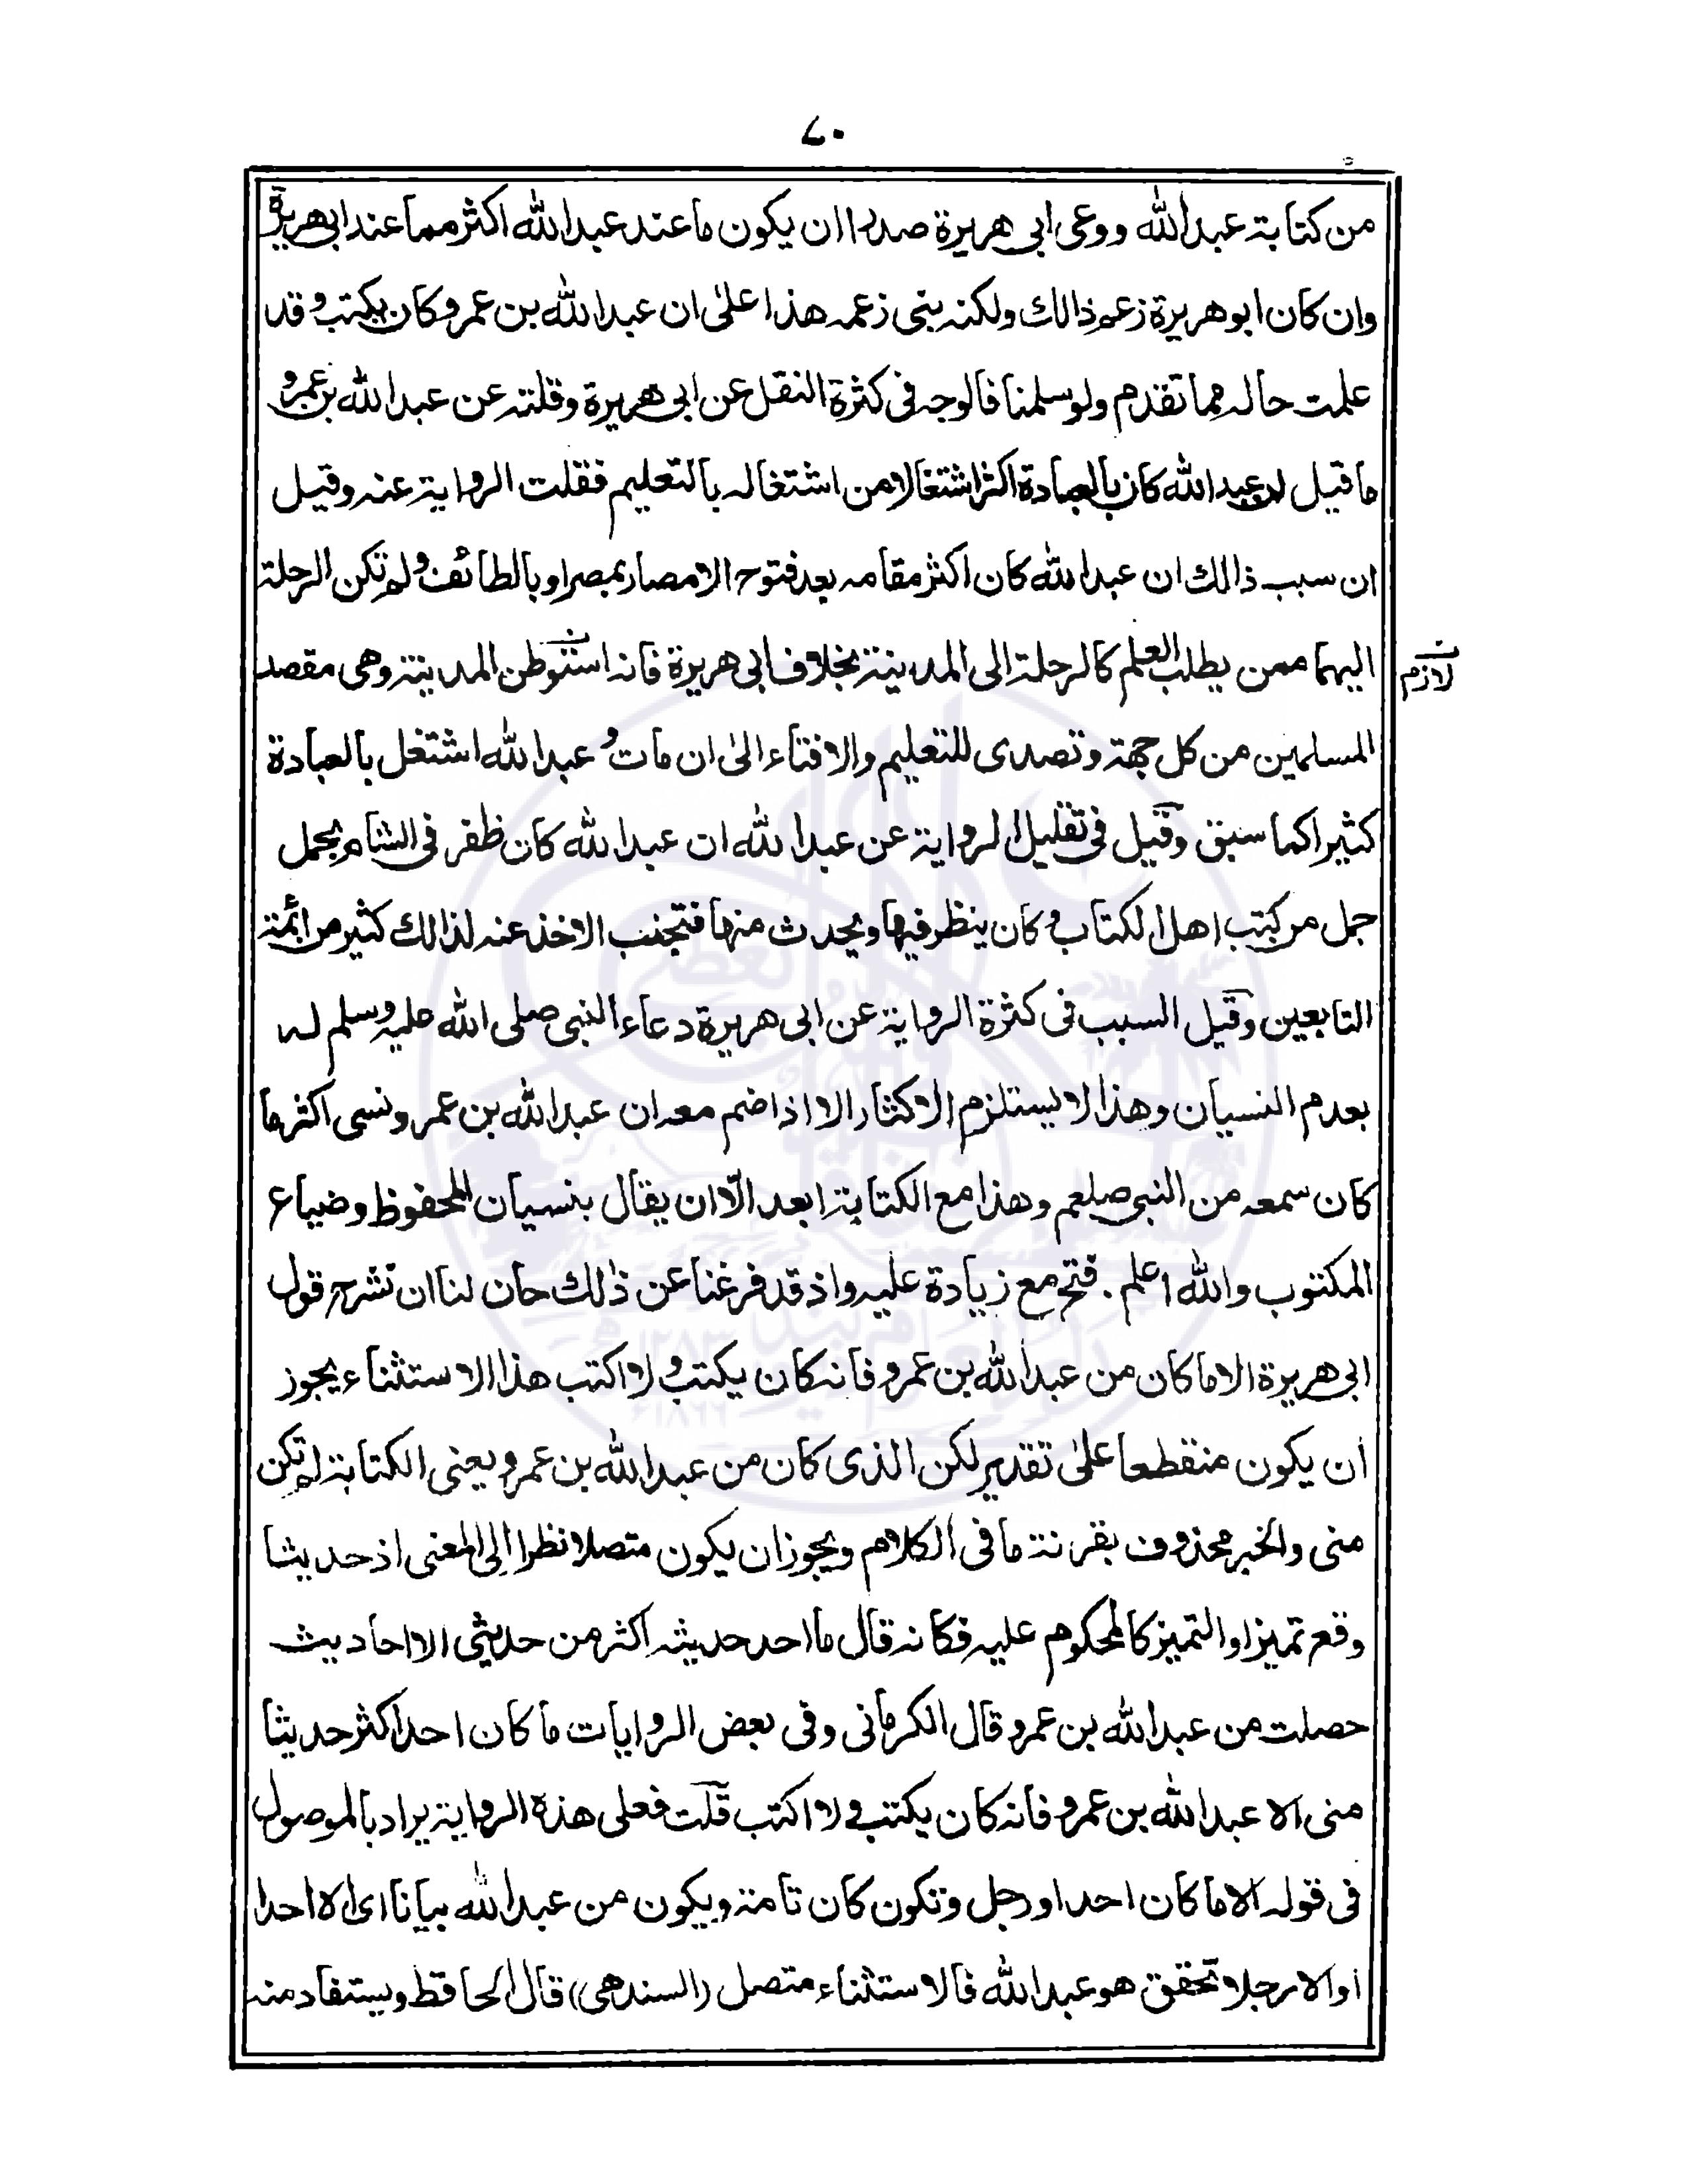 ٧٠
من كتابة عبدالله ووعى ابى هريرة صدرا ان يكون ما عند عبدالله اكثر مما عند ابى هريرة
وان كان ابو هريرة زعم ذالك ولكنه بنى زعمه هذا على ان عبدالله بن عمرو كان يكتب وقد
علمت حاله مما تقدم ولو سلمنا فالوجه فى كثرة النقل عن ابى هريرة وقلته عن عبدالله بن عمرو
ما قيل ان عبدالله كان بالعبادة اكثر اشتغالا من اشتغاله بالتعليم فقلت الرواية عنه وقيل
ان سبب ذالك ان عبدالله كان اكثر مقامه بعد فتوح الامصار بمصر او بالطائف ولم تكن الرحلة
اليهما ممن يطلب العلم كالرحلة الى المدينة بخلاف ابى هريرة فانه استوطن المدينة وهى مقصد
لازم
المسلمين من كل جهة وتصدى للتعليم والافتاء الى ان مات وعبدالله اشتغل بالعبادة
كثيرا كما سبق وقيل فى تقليل الرواية عن عبدالله ان عبدالله كان ظفر فى الشام بحمل
جمل من كتب اهل الكتاب وكان ينظر فيها ويحدث منها فتجنب الاخذ عنه لذالك كثير من ائمة
التابعين وقيل السبب فى كثرة الرواية عن ابى هريرة دعاء النبى صلى الله عليه وسلم له
بعدم النسيان وهذا لا يستلزم الاكثار الا اذا ضم معه ان عبدالله بن عمرو نسى اكثر ما
كان سمعه من النبى صلعم وهذا مع الكتابة ابعد الّا ان يقال بنسيان المحفوظ وضياع
المكتوب والله اعلم . فتح مع زيادة عليه واذ قد فرغنا عن ذلك حان لنا ان نشرح قول
ابى هريرة الا ما كان من عبدالله بن عمرو فانه كان يكتب ولا اكتب هذا الاستثناء يجوز
ان يكون منقطعا على تقدير لكن الذى كان من عبدالله بن عمرو يعنى الكتابة لم تكن
منى والخبر محذوف بقرنة ما فى الكلام ويجوز ان يكون متصلا نظرا الى المعنى اذ حديثا
وقع تميزا والتميز كالمحكوم عليه فكانه قال ما احد حديثه اكثر من حديثى الا احاديث
حصلت من عبدالله بن عمرو قال الكرمانى وفى بعض الروايات ما كان احد اكثر حديثا
منى الا عبدالله بن عمرو فانه كان يكتب ولا اكتب قلت فعلى هذه الرواية يراد بالموصول
فى قوله الا ما كان احد او رجل وتكون كان تامة ويكون من عبدالله بيانا اى الا احدا
او الا رجلا تحقق هو عبدالله فالاستثناء متصل (السندهى) قال الحافظ ويستفاد منه